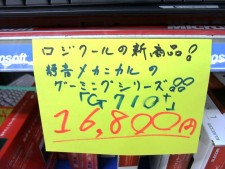 ロジクールの新商品!
静音メカニカルの
ゲーミングシリーズ!!
「G710+」
16,800円